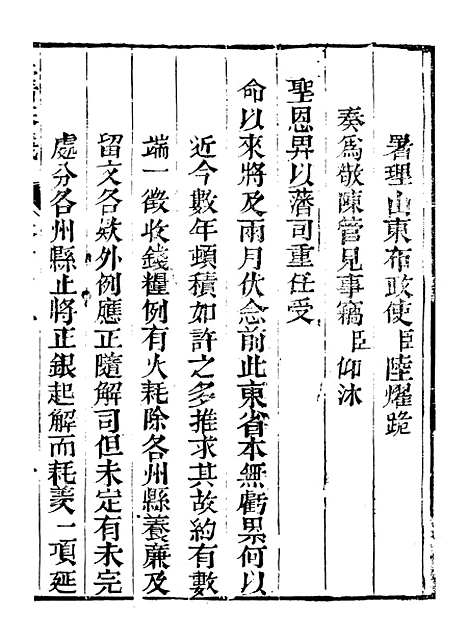 署理山東布政使臣陸燿跪
奏爲敬陳管見事竊臣仰沐
聖恩畀以藩司重任受
命以來將及兩月伏念前此東省本無虧累何以
近今數年頓積如許之多推求其故約有數
端一徵收錢糧例有火耗除各州縣養廉及
留支各欵外例應正隨解司但未定有未完
處分各州縣止將正銀起解而耗羡一項延